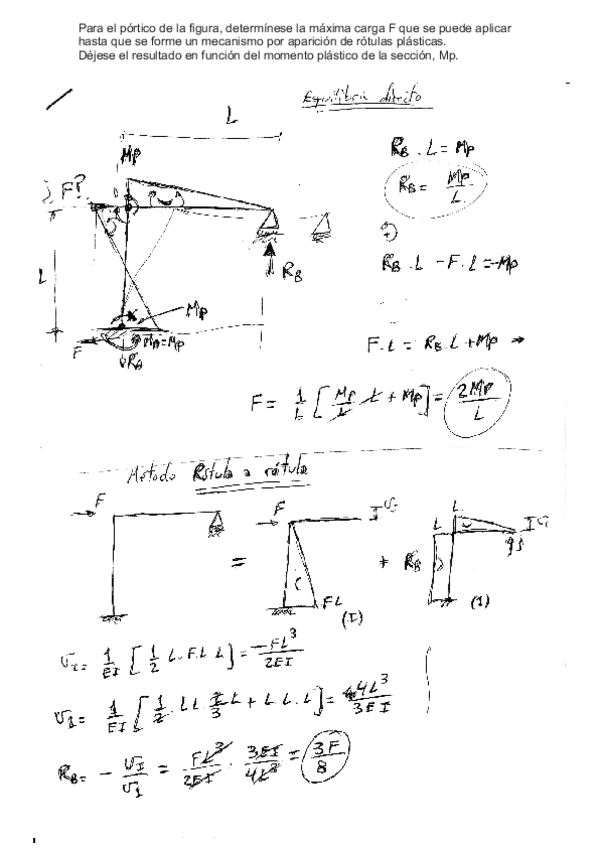 Para el pórtico de la figura, determínese la máxima carga F que se puede aplicar
hasta que se forme un mecanismo por aparición de rótulas plásticas.
Déjese el resultado en función del momento plástico de la sección, Mp.
Equilibrio directo
L
Mp
¿F?
L
R_B
Mp
F
M_A=Mp
R_A
R_B . L = Mp
R_B = Mp/L
R_B . L - F . L = -Mp
F . L = R_B . L + Mp ⇒
F = 1/L [ Mp/L L + Mp ] = 2Mp/L
Método Rótula a rótula
F
=
F
I
FL
(I)
+ R_B
L
L
(1)
v_I = 1/EI [ 1/2 L . F.L L ] = -FL³/2EI
v_1 = 1/EI [ 1/2 . L L 2/3 L + L . L . L ] = 4L³/3EI
R_B = - v_I/v_1 = FL³/2EI . 3EI/4L³ = 3F/8